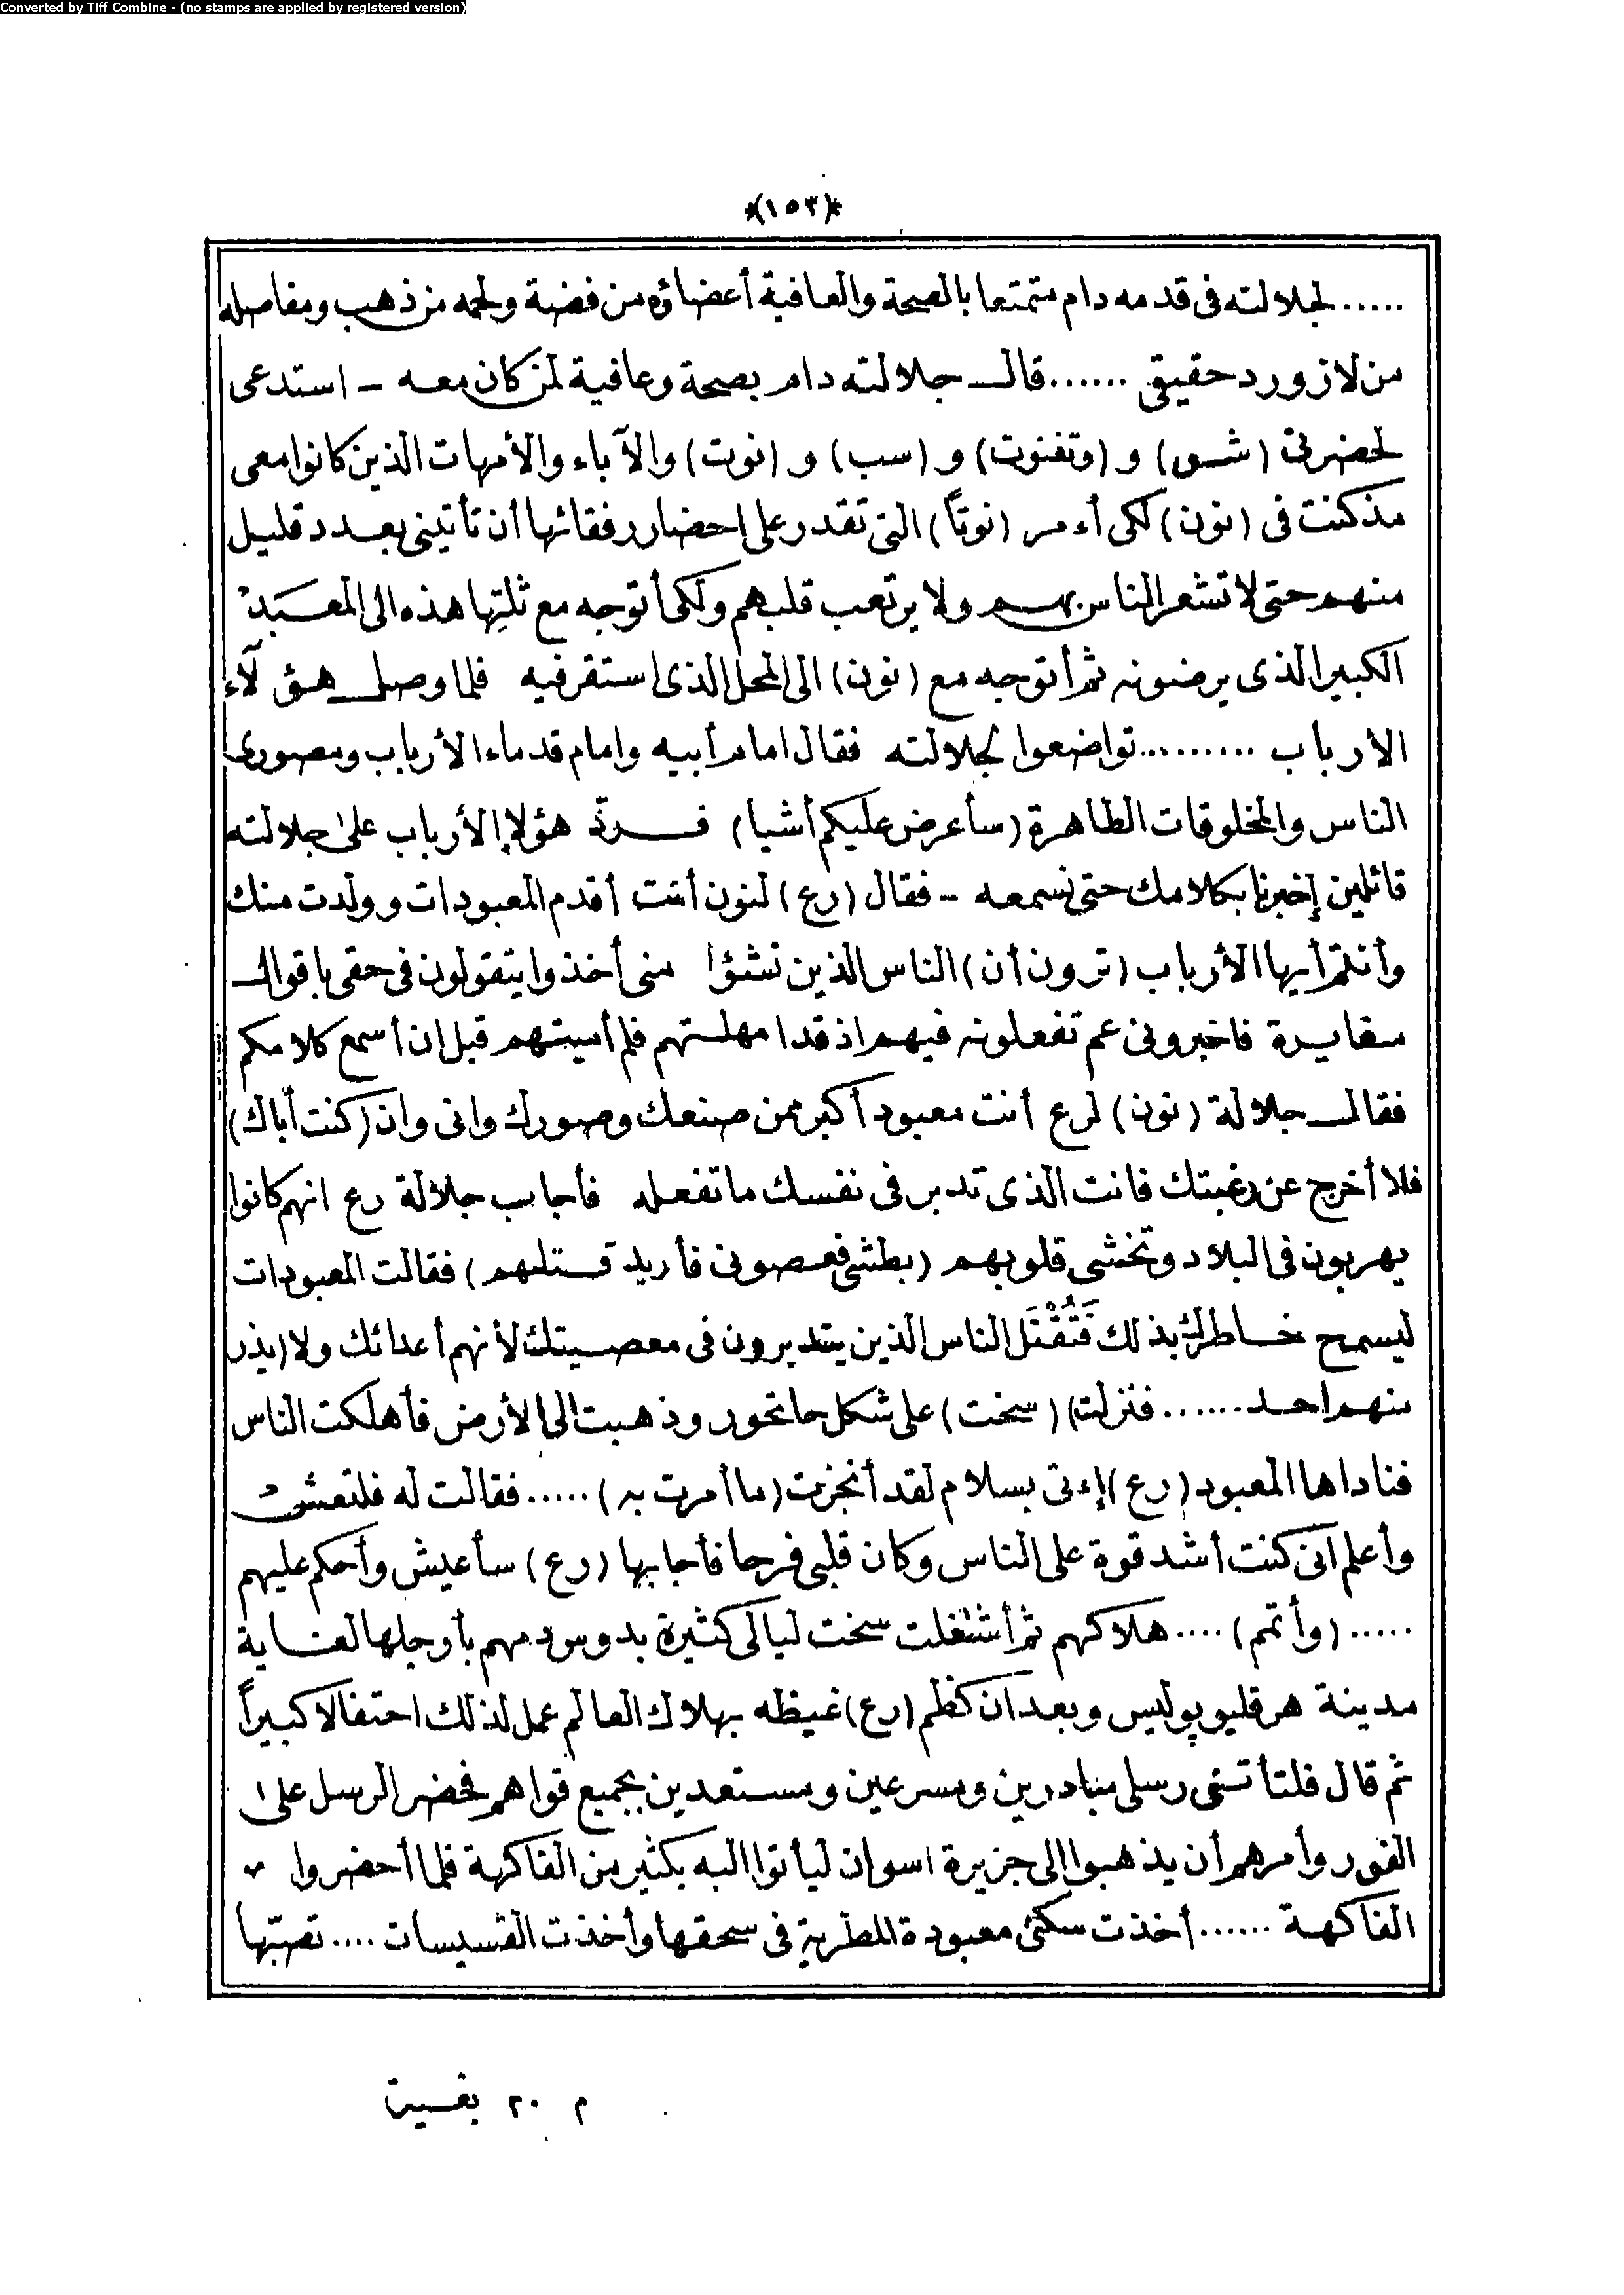 Converted by Tiff Combine - (no stamps are applied by registered version)
*(١٥٣)*
...... لجلالته فى قدمه دام متمتعا بالصحة والعافية أعضاؤه من فضة ولحمه من ذهب ومفاصله
من لازورد حقيقى ...... قال جلالته دام بصحة وعافية لمن كان معه - استدعى
لحضرتى (شو) و (وتفنوت) و (سب) و (نوت) والآباء والأمهات الذين كانوا معى
مذكنت فى (نون) لكى أءمر (نوتاً) التى تقدر على احضار رفقائها أن تأتينى بعدد قليل
منهم حتى لا تشعر الناس بهم ولا يرتعب قلبهم ولكى أتوجه مع ثلتها هذه الى المعبد
الكبير الذى يرضونه ثم أتوجه مع (نون) الى المحل الذى استقر فيه فلما وصل هؤلآء
الأرباب ......... تواضعوا لجلالته فقال امام أبيه وامام قدماء الأرباب ومصورى
الناس والمخلوقات الطاهرة (سأعرض عليكم أشيا) فردّ هؤلاء الأرباب على جلالته
قائلين إخبرنا بكلامك حتى نسمعه - فقال (رع) لنون أنت أقدم المعبودات وولدت منك
وأنتم أيها الأرباب (ترون أن) الناس الذين نشؤا منى أخذوا يتقولون فى حقى باقوال
مغايرة فاخبرونى عم تفعلونه فيهم اذ قد امهلتهم فلم أميتهم قبل ان أسمع كلامكم
فقال جلالة (نون) لرع أنت معبود أكبر ممن صنعك وصورك وانى وان (كنت أباك)
فلا أخرج عن رغبتك فانت الذى تدبر فى نفسك ما تفعله فأجاب جلالة رع انهم كانوا
يهربون فى البلاد وتخشى قلوبهم (بطشى فعصونى فأريد قتلهم) فقالت المعبودات
ليسمح خاطرك بذلك فَتُقْتَل الناس الذين يتدبرون فى معصيتك لأنهم أعدائك ولا (يذر
منهم احد ...... فنزلت) (سخت) على شكل حاتحور وذهبت الى الأرض فأهلكت الناس
فناداها المعبود (رع) إءتى بسلام لقد أنجزت (ما أمرت به) ..... فقالت له فلتعش
وأعلم انى كنت أشد قوة على الناس وكان قلبى فرحا فأجابها (رع) سأعيش وأحكم عليهم
..... (وأتمم) .... هلاكهم ثم أشتغلت سخت ليالى كثيرة بدوس دمهم بأرجلها لغاية
مدينة هرقليوپوليس وبعد ان كظم (رع) غيظه بهلاك العالم عمل لذلك احتفالا كبيراً
ثم قال فلتأتنى رسلى مبادرين ومسرعين ومستعدين بجميع قواهم فحضر الرسل على
الفور وأمرهم أن يذهبوا الى جزيرة اسوان ليأتوا اليه بكثير من الفاكهة فلما أحضروا
الفاكهة ...... أخذت سكتى معبودة المطرية فى سحقها وأخذت القسيسات .... تصبّها
م ٢٠ بغية